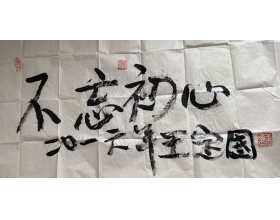 不忘初心
二〇一六年王定国